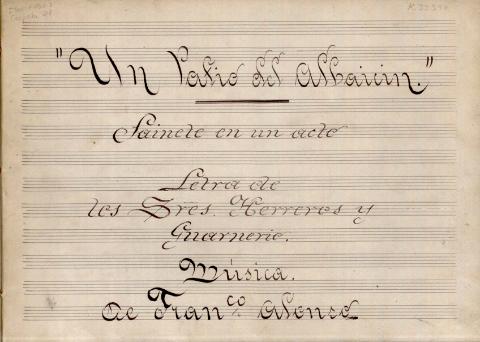 "Un Patio del Albaicin."
Sainete en un acto
Letra de
los Sres. Herreros y
Guarnerio.
Música.
de Franco. Alonso